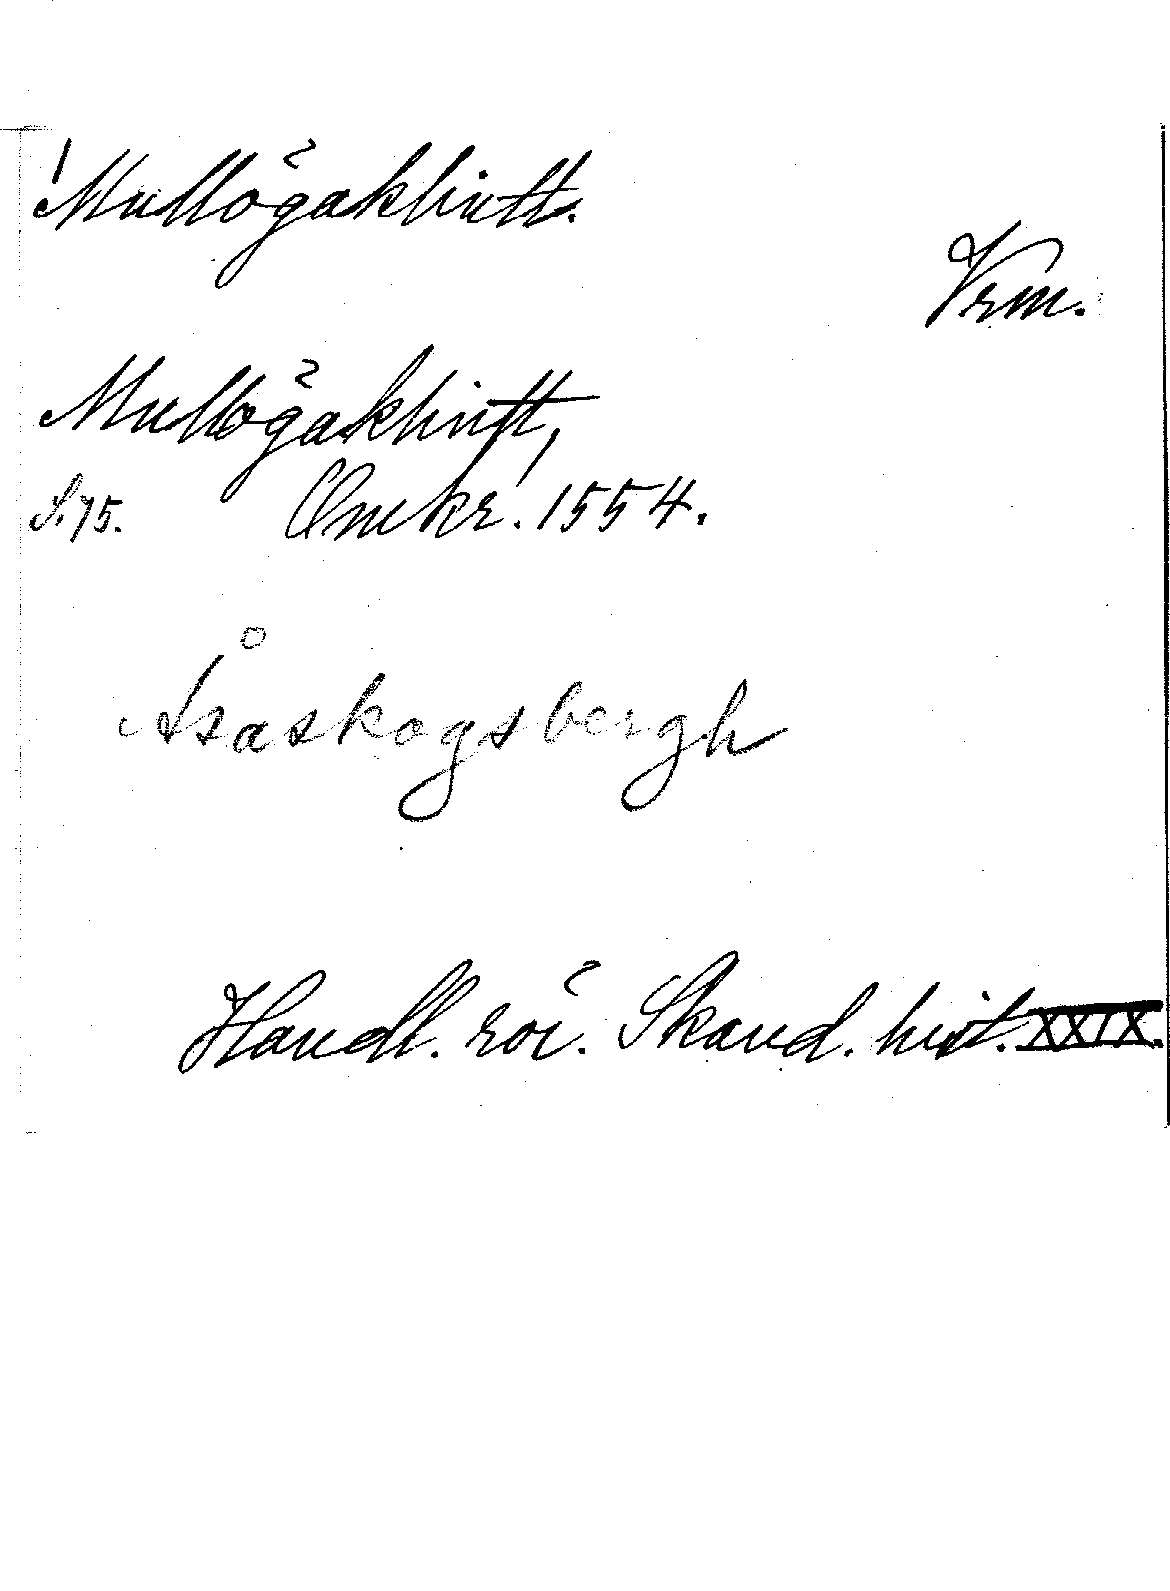 Mullögakhutt.
Vrm.
Mullögakhutt,
S. 75. Omkr. 1554.
Åsaskogsbergh
Handl. rör. Skand. hist. XXIX.